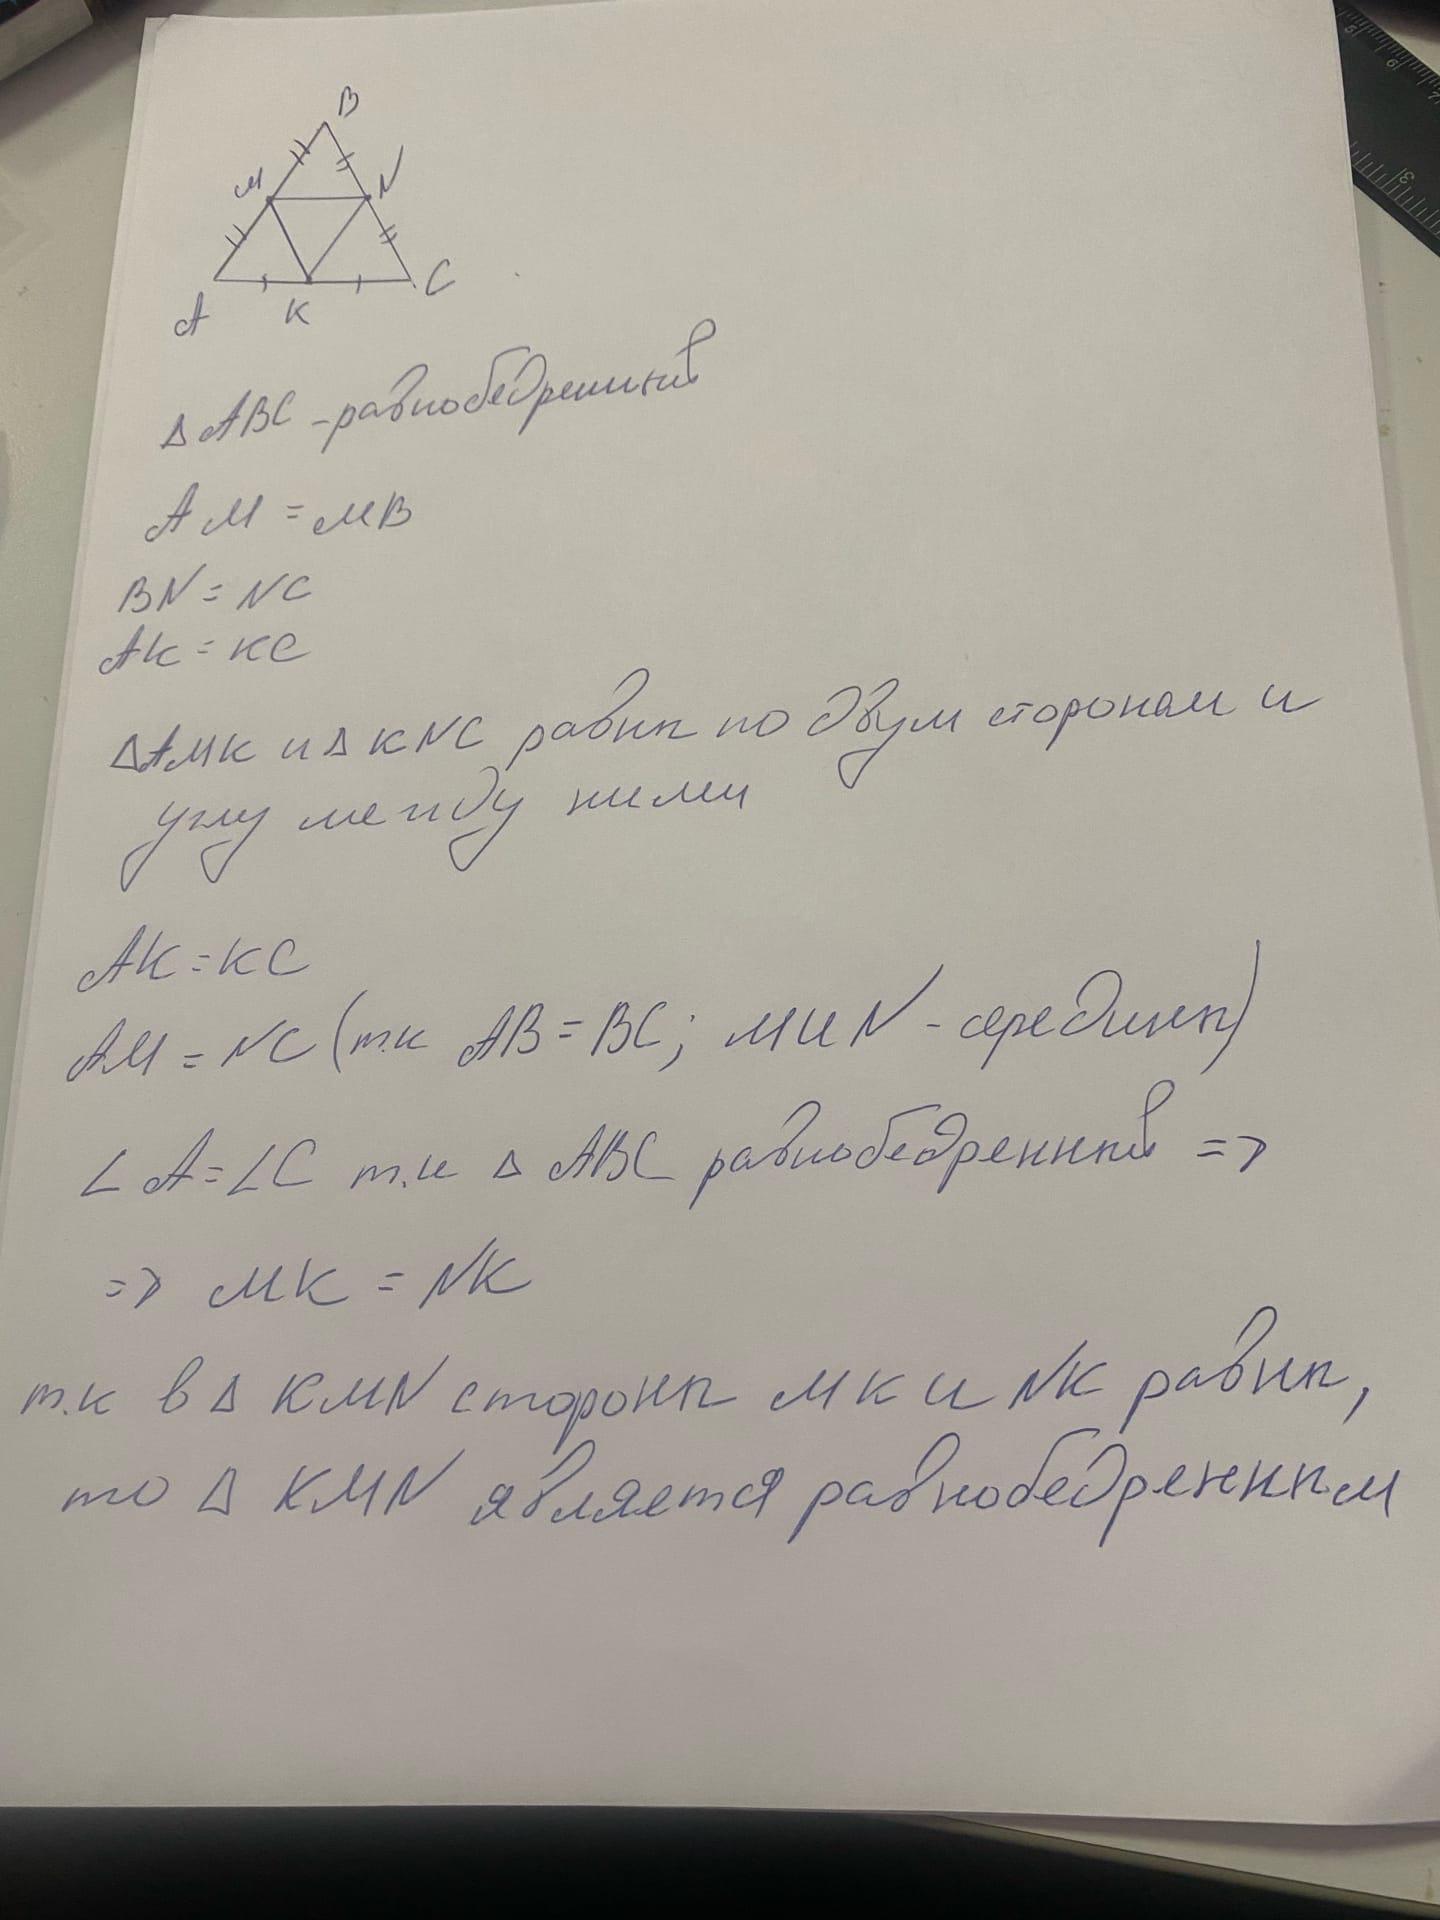 B
M
N
A
K
C
Δ ABC - равнобедренный
AM = MB
BN = NC
AK = KC
Δ AMK и Δ KNC равны по двум сторонам и
углу между ними
AK = KC
AM = NC (т.к AB = BC; M и N - середины)
∠ A = ∠ C т.к Δ ABC равнобедренный =>
=> MK = NK
т.к в Δ KMN стороны MK и NK равны,
то Δ KMN является равнобедренным
5
6
7
3